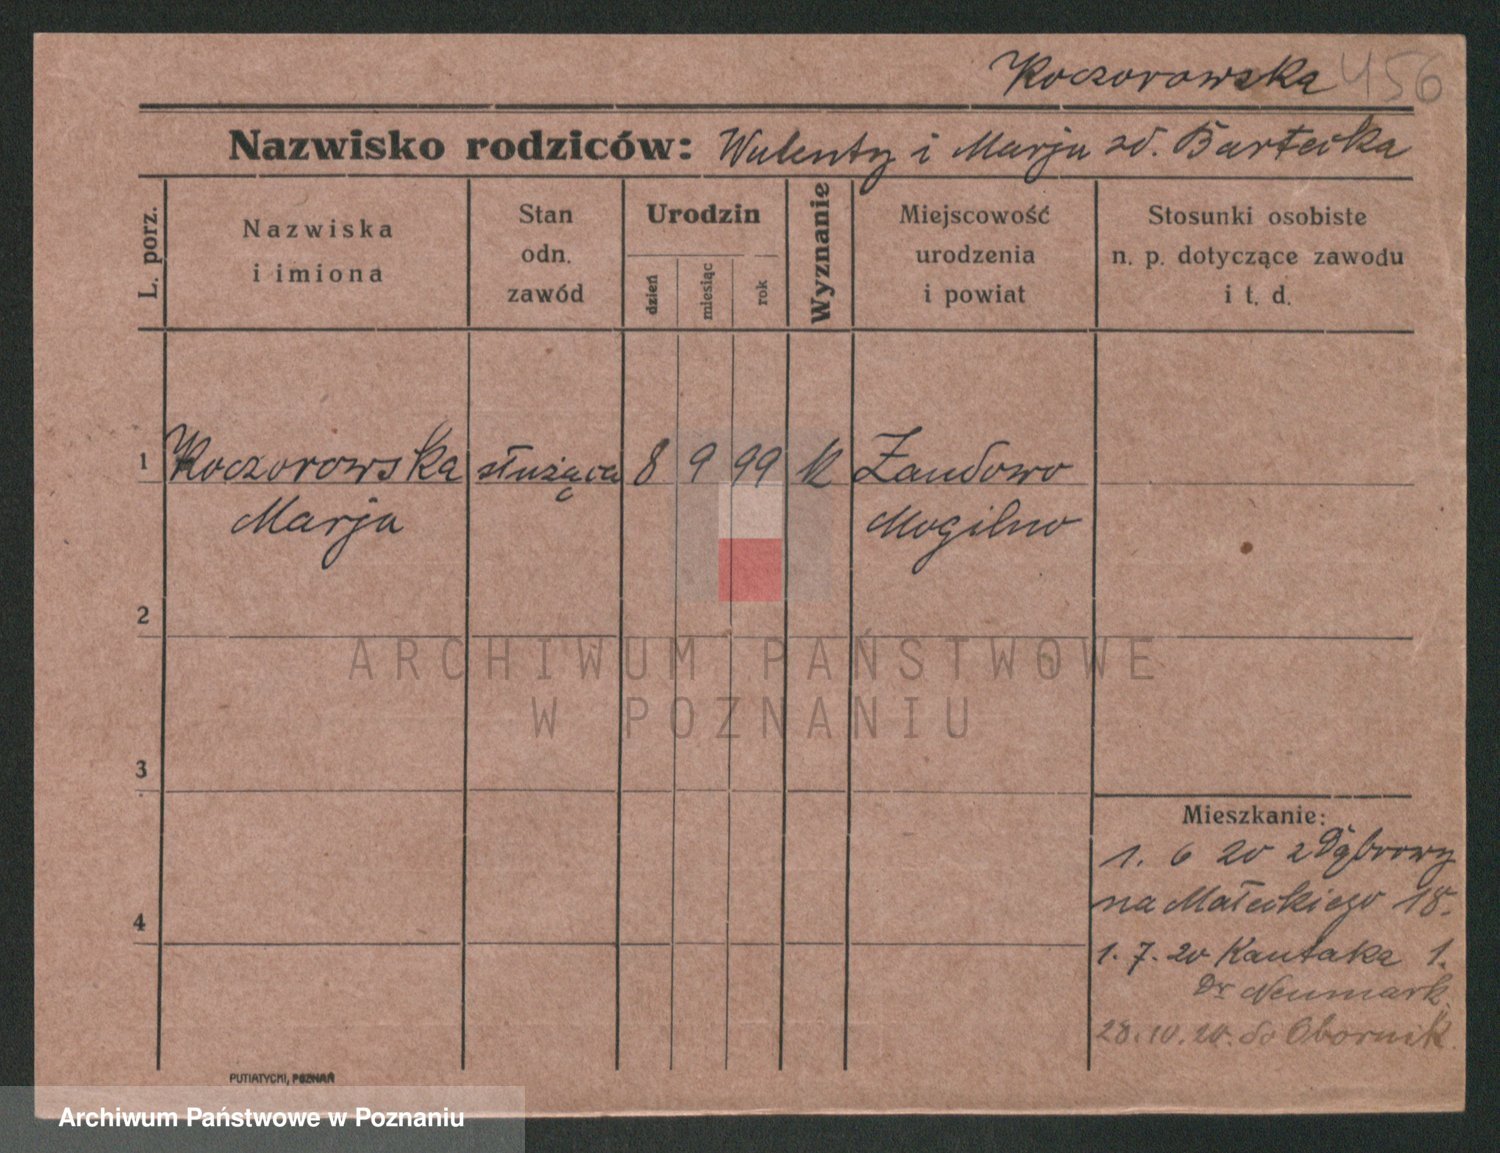 Koczorowska 456
Nazwisko rodziców: Walenty i Marja zd. Bartecka
L. porz.
Nazwiska
i imiona
Stan
odn.
zawód
Urodzin
dzień
miesiąc
rok
Wyznanie
Miejscowość
urodzenia
i powiat
Stosunki osobiste
n. p. dotyczące zawodu
i t. d.
1 Koczorowska służąca 8 9 99 k Żandowo
Marja Mogilno
2
ARCHIWUM PAŃSTWOWE
W POZNANIU
3
Mieszkanie:
1. 6 20 z Dąbrowy
na Małeckiego 18.
4
1. 7. 20 Kantaka 1.
Dr Neumark.
28.10.20. do Obornik.
PUTIATYCKI, POZNAŃ
Archiwum Państwowe w Poznaniu